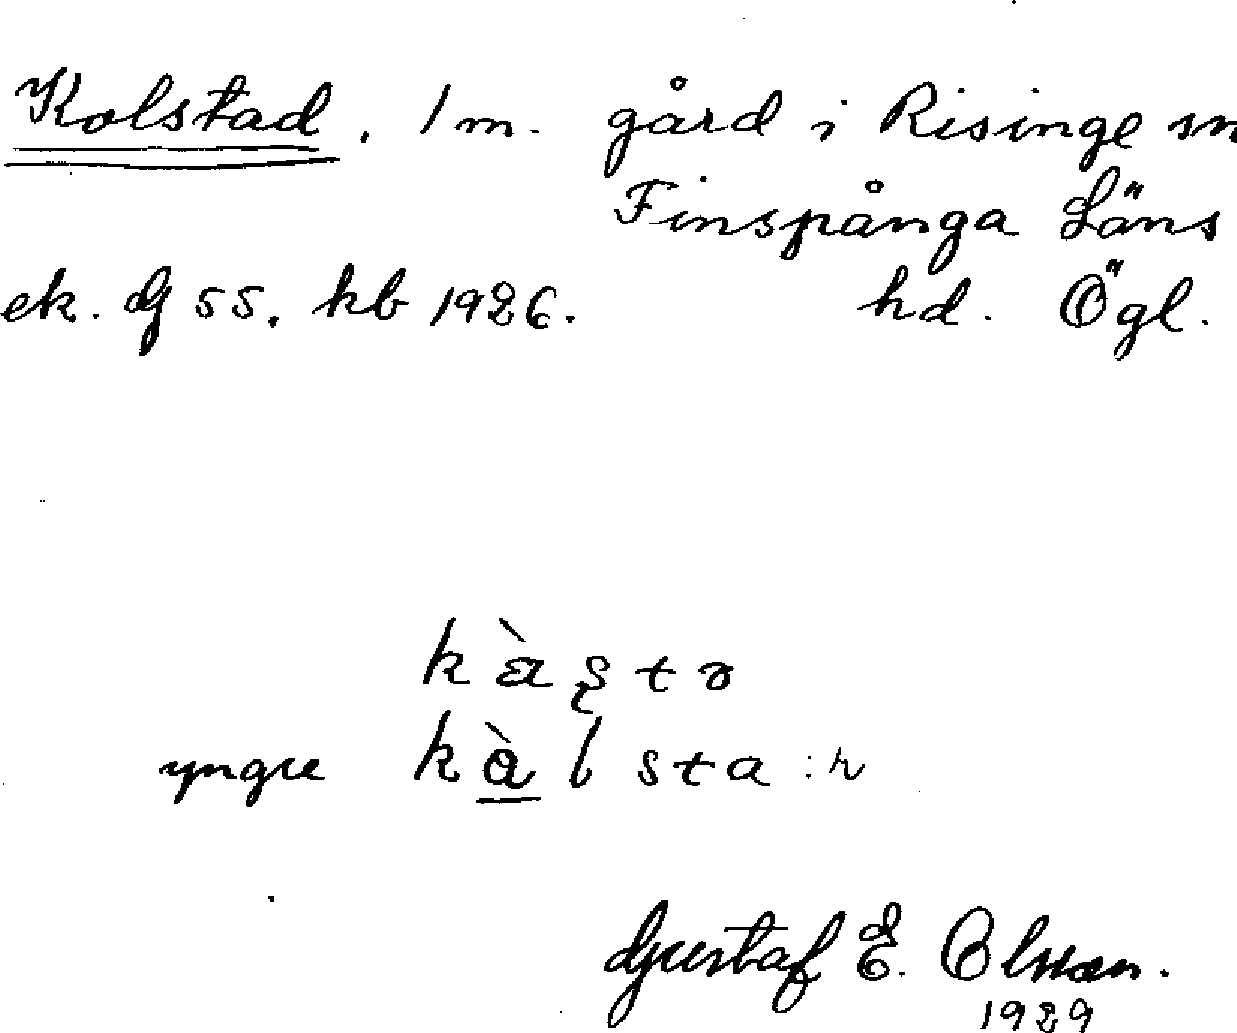 Kolstad. 1 m. gård i Risinge sn
Finspånga Läns
ek. bl 55. kb 1926. hd. Ögl.
kàʂtɞ
yngre kàl sta :n
Gustaf E. Olsson.
1929